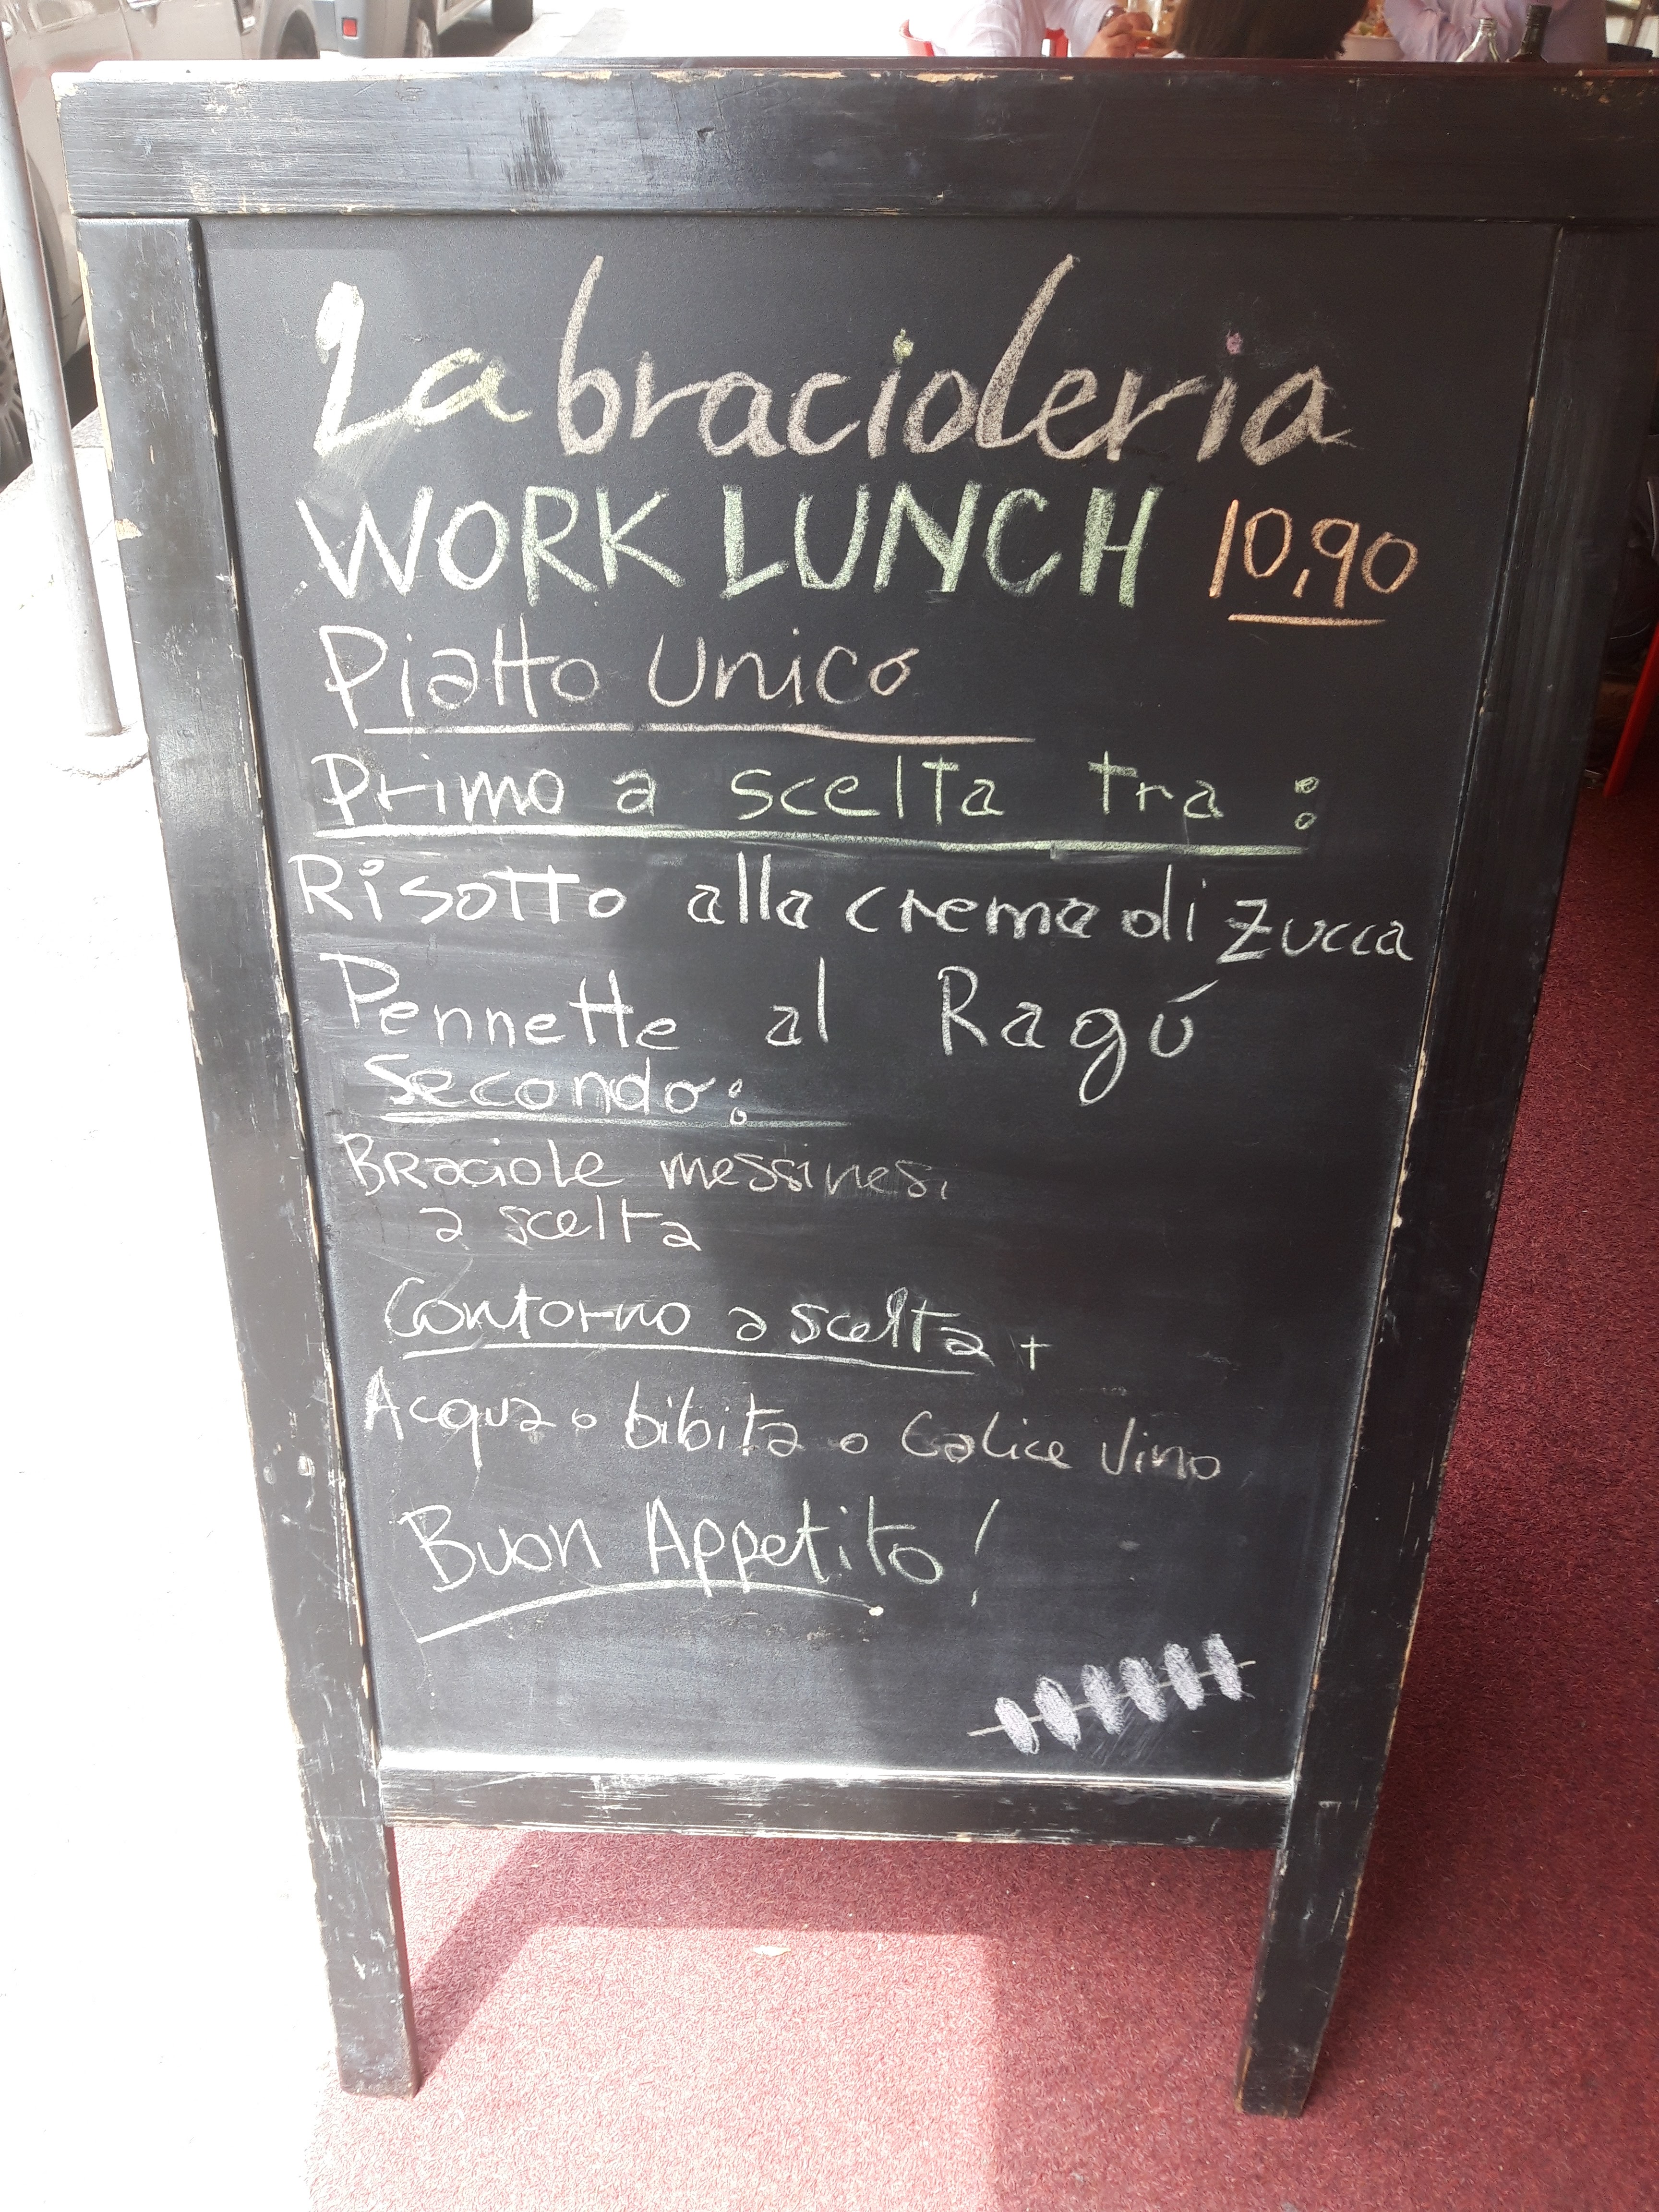 La bracioleria
WORK LUNCH 10,90
Piatto unico
Primo a scelta tra:
Risotto alla crema di zucca
Pennette al Ragú
Secondo:
Braciole messinesi
a scelta
Contorno a scelta +
Acqua o bibita o Calice vino
Buon Appetito!